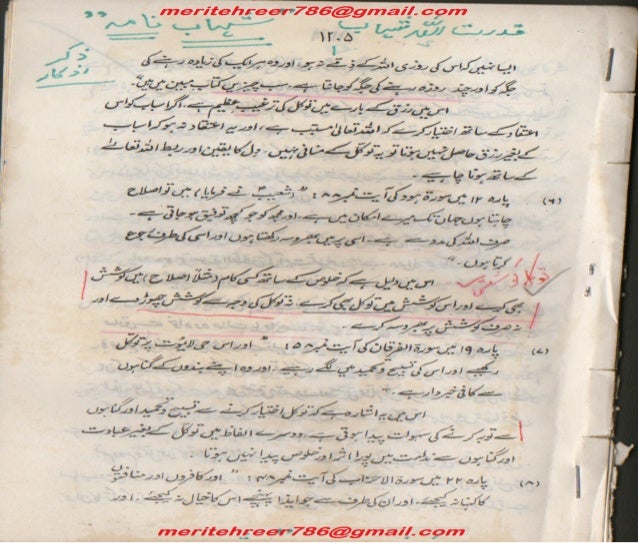 meritehreer786@gmail.com
قدرت اللہ شہاب " شہاب نامہ "
۱۲۰۵
ذکر
اذکار
ایسا نہیں کہ اس کی روزی اللہ کے ذمے نہ ہو۔ اور وہ ہر ایک کی زیادہ رہنے کی
جگہ کو اور چند روزہ رہنے کی جگہ کو جانتا ہے۔ سب چیزیں کتاب مبین میں ہیں"۔
اس میں رزق کے بارے میں توکل کی ترغیب عظیم ہے۔ اگر اسباب کو اس
اعتقاد کے ساتھ اختیار کرے کہ اللہ تعالیٰ مسبب ہے، اور یہ اعتقاد نہ ہو کہ اسباب
کے بغیر رزق حاصل نہیں ہوتا تو یہ توکل کے منافی نہیں۔ دل کا یقین اور ربط اللہ تعالےٰ
کے ساتھ ہونا چاہیے۔
(۶) پارہ ۱۲ میں سورۃ ہود کی آیت نمبر ۸۸: " (شعیبؑ نے فرمایا) میں تو اصلاح
چاہتا ہوں جہاں تک میرے امکان میں ہے۔ اور مجھ کو جو کچھ توفیق ہو جاتی ہے۔
صرف اللہ کی مدد سے ہے۔ اسی پر میں بھروسہ رکھتا ہوں اور اسی کی طرف رجوع
کرتا ہوں۔"
اس میں دلیل ہے کہ خلوص کے ساتھ کسی کام (مثلاً اصلاح) میں کوشش
بھی کرے اور اس کوشش میں توکل بھی کرے۔ نہ توکل کی وجہ سے کوشش چھوڑ دے اور
نہ صرف کوشش پر بھروسہ کرے۔
(۷) پارہ ۱۹ میں سورۃ الفرقان کی آیت نمبر ۵۸: " اور اس حی لایموت پر توکل
رکھیے اور اس کی تسبیح و تحمید میں لگے رہیے۔ اور وہ اپنے بندوں کے گناہوں
سے کافی خبردار ہے۔"
اس میں یہ اشارہ ہے کہ توکل اختیار کرنے سے تسبیح و تحمید اور گناہوں
سے توبہ کرنے کی سہولت پیدا ہوتی ہے۔ دوسرے الفاظ میں توکل کے بغیر عبادت
اور گناہوں سے ندامت میں پورا اثر اور خلوص پیدا نہیں ہوتا۔
(۸) پارہ ۲۲ میں سورۃ الاحزاب کی آیت نمبر ۴۸: " اور کافروں اور منافقوں
کا کہنا نہ کیجیے۔ اور ان کی طرف سے جو ایذا پہنچے اس کا خیال نہ کیجیے۔ اور
meritehreer786@gmail.com